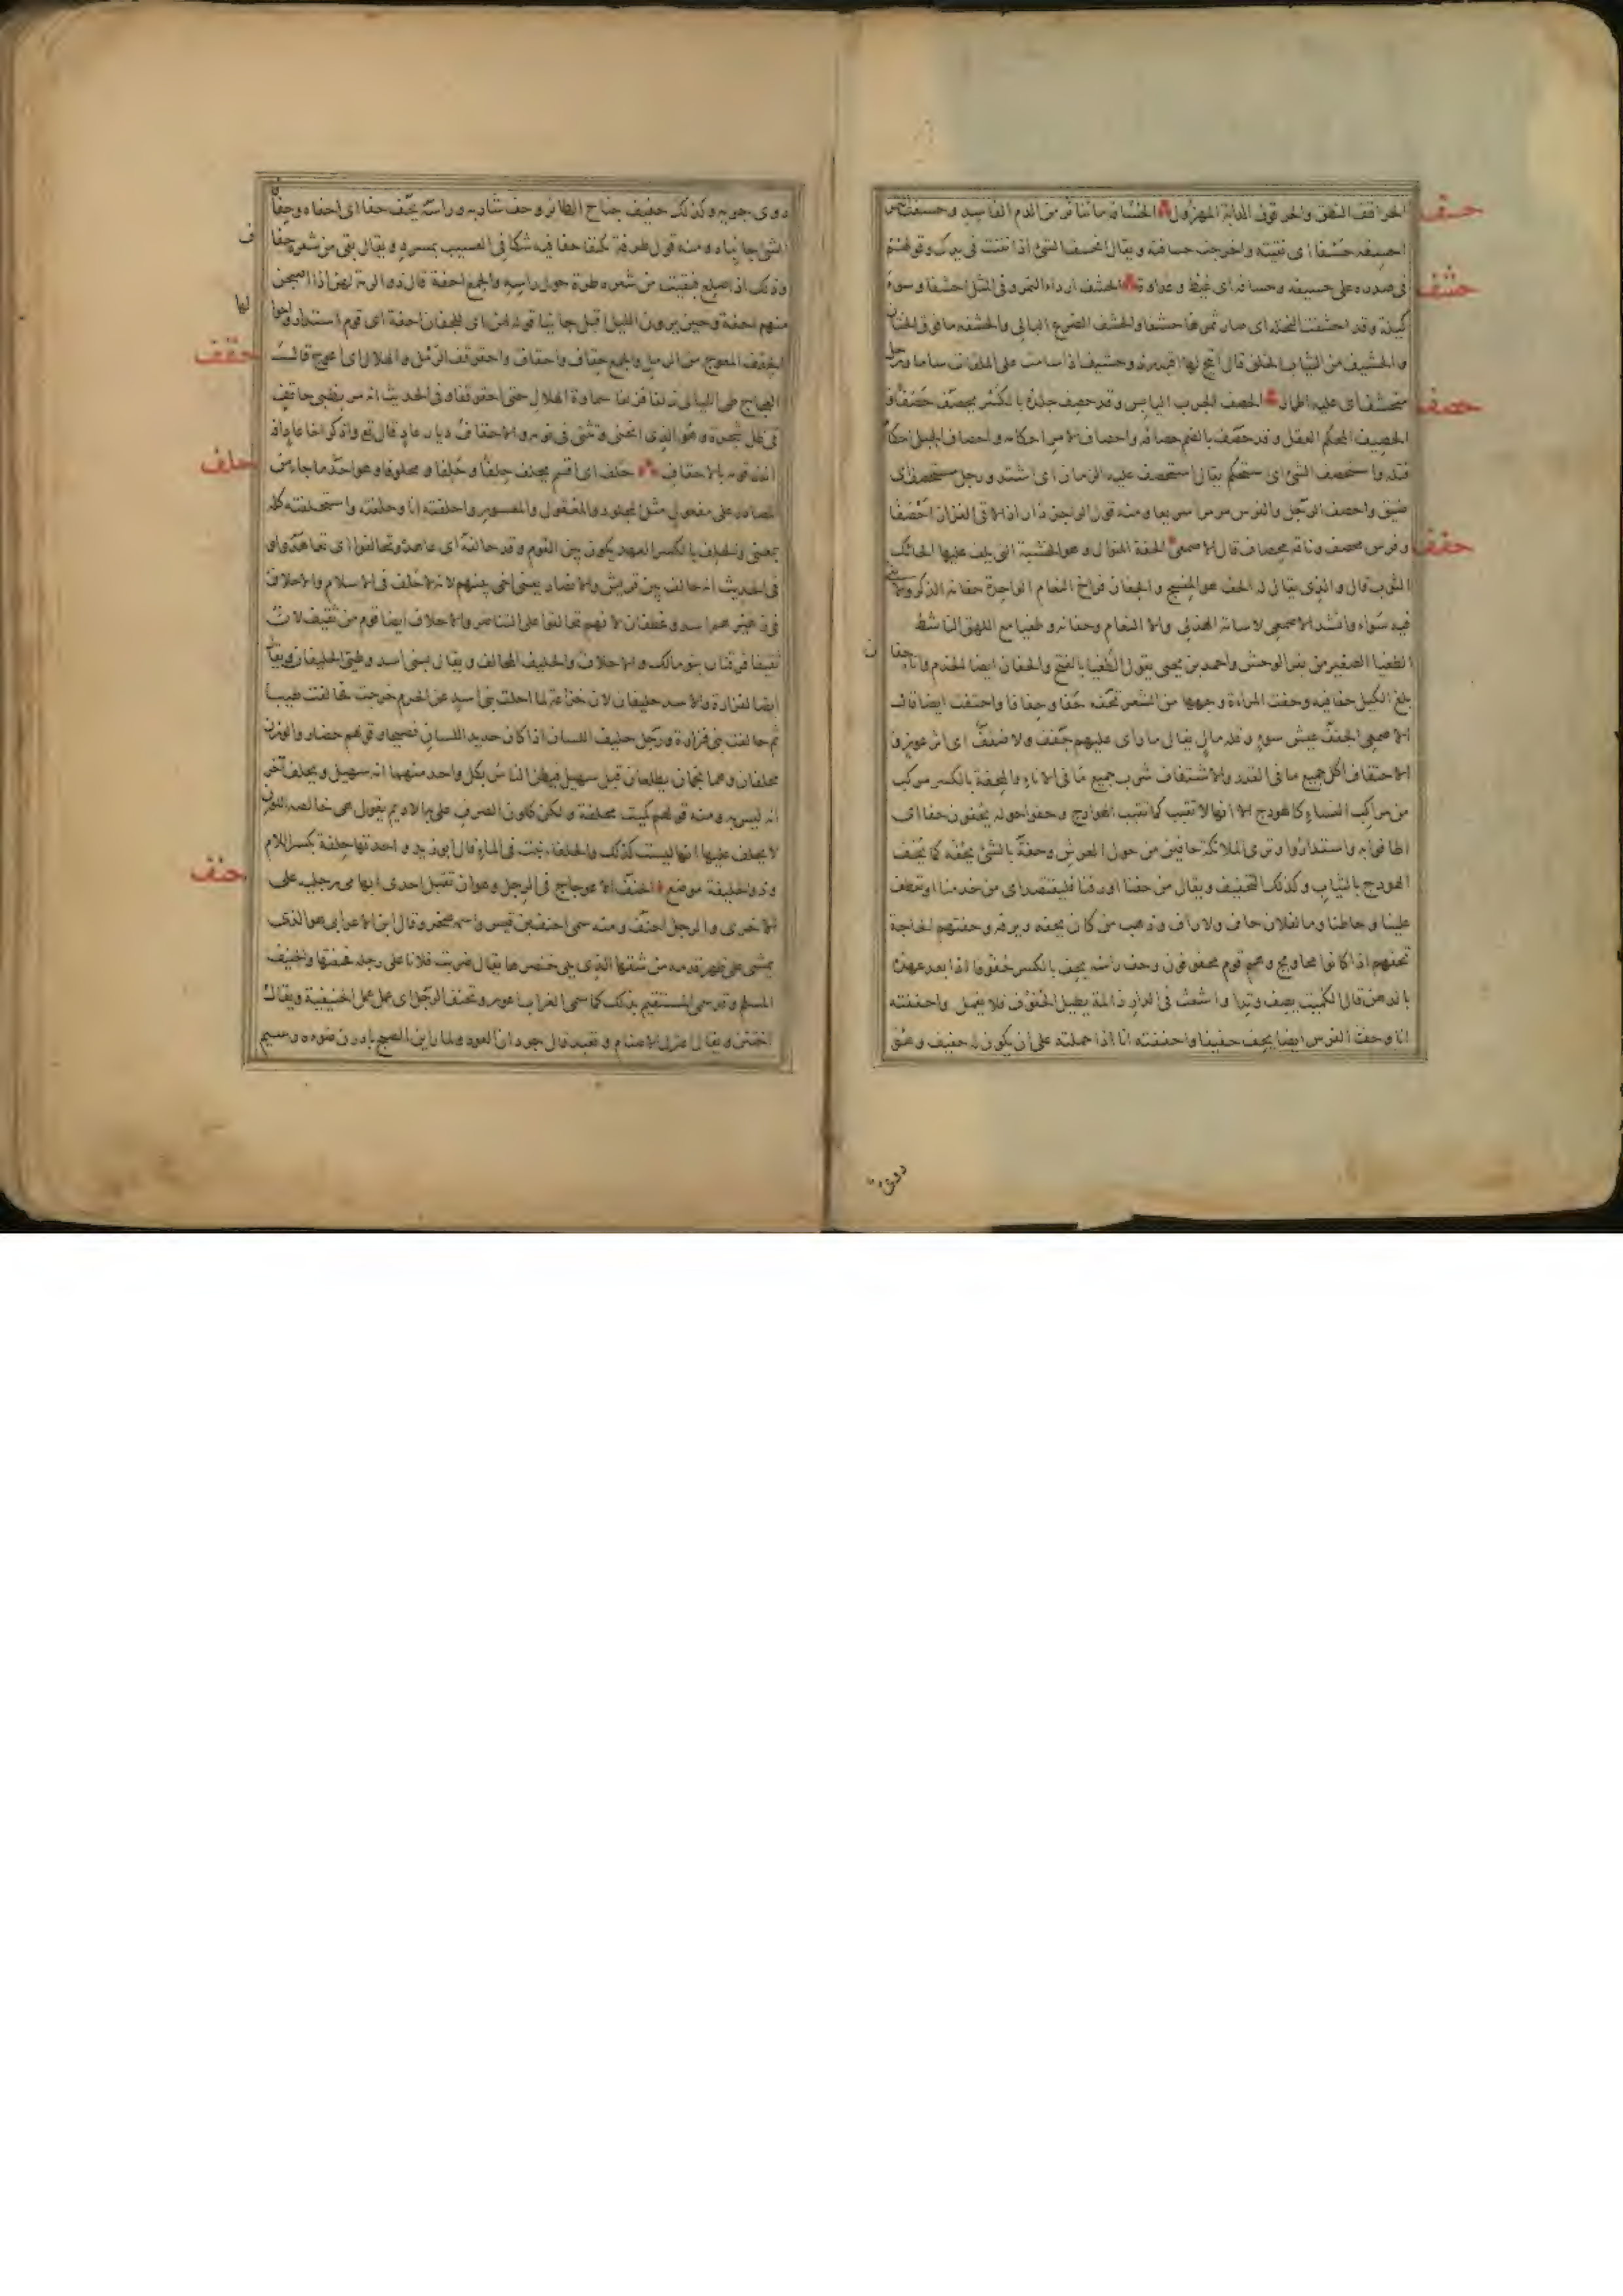 حسف
الحراقف النهق والحرقوف الدابة المهزول الحسافة ما تناثر من التمر الفاسد
حشف
فى صدره على حسيفة وحسافة اى غيظ وعداوة الحشف اردا التمر وفى المثل احشفا وسوء
كيلة وقد احشفت النخلة اى صار تمرها حشفا والحشف الضرع البالى والحشفة ما فوق الختان
والحشيف من الثياب الخلق قال
حصف
متحشف اى عليه اطمار الحصف الجرب اليابس وقد حصف جلده بالكسر يحصف حصفا و
الحصيف المحكم العقل وقد حصف بالضم حصافة واحصاف الامر احكامه واحصاف الحبل احكام
فتله واستحصف الشئ اى استحكم يقال استحصف عليه الزمان اى اشتد و
ضيق واحصف الرجل والفرس مر مرا سريعا ومنه قول الراجز ذار اذا لاقى العزاز احصفا
حفف
وفرس محصف وناقة محصاف قال الاصمعى الحفة المنوال وهو الخشبة التى يلف عليها الحائك
الثوب قال والذى يقال له الحف هو المنسج والحفان فراخ النعام الواحدة حفانة الذكر والانثى
فيه سواء وانشد الاصمعى لاسامة الهذلى والا النعام وحفانه وطغيا مع اللهق الناشط
الطغيا الصغير من بقر الوحش واحمد بن يحيى يقول الطغيا بالفتح والحفان ايضا الخدم واناء حفان
بلغ الكيل حفافيه وحفت المراة وجهها من الشعر تحفه حفا وحفافا واحتفت ايضا قال
الاصمعى الحفف عيش سوء وقلة مال يقال ما راى عليهم حفف ولا ضفف اى اثر عوز و
الاحتفاف اكل جميع ما فى القدر والاشتفاف شرب جميع ما فى الاناء والمحفة بالكسر مركب
من مراكب النساء كالهودج الا انها لا تقبب كما تقبب الهوادج وحفوا حوله يحفون حفا اى
اطافوا به واستداروا وترى الملائكة حافين من حول العرش وحفه بالشئ يحفه كما يحف
الهودج بالثياب وكذلك التحفيف ويقال من حفنا او رفنا فليقتصد اى من خدمنا او تعطف
علينا وحاطنا وما لفلان حاف ولا راف وذهب من كان يحفه ويرفه وحفتهم الحاجة
تحفهم اذا كانوا محاويج وهم قوم محفوفون وحف راسه يحف بالكسر حفوفا اذا بعد عهده
بالدهن قال الكميت يصف وتدا واشعث فى الدار ذا لمة يطيل الحفوف فلا يقمل واحففته
انا وحف الفرس ايضا يحف حفيفا واحففته انا اذا حملته على ان يكون له حفيف وهو
دوى جريه وكذلك حفيف جناح الطائر وحف شاربه وراسه يحف حفا اى احفاه وحفافا
الشئ جانباه ومنه قول طرفة تكنفا حفافيه شكا فى العسيب بمسرد ويقال بقى من شعره حفاف
وذلك اذا صلع فبقيت من شعره طرة حول راسه والجمع احفة قال ذو الرمة لهن اذا اصبحن
منهم احفة وحين يرون الليل اقبل جائيا قوله لهن اى للجفان احفة اى قوم استداروا حولها
حقف
الحقف المعوج من الرمل والجمع حقاف واحقاف واحقوقف الرمل والهلال اى اعوج قال
العجاج طى الليالى زلفا فزلفا سماوة الهلال حتى احقوقفا وفى الحديث انه مر بظبى حاقف
فى ظل شجرة وهو الذى انحنى وتثنى فى نومه والاحقاف ديار عاد قال تع واذكر اخا عاد اذ
حلف
انذر قومه بالاحقاف حلف اى اقسم يحلف حلفا وحلفا ومحلوفا وهو احد ما جاء من
المصادر على مفعول مثل المجلود والمعقول والميسور واحلفته انا وحلفته واستحلفته كله
بمعنى والحلف بالكسر العهد يكون بين القوم وقد حالفه اى عاهده وتحالفوا اى تعاهدوا و
فى الحديث انه حالف بين قريش والانصار يعنى اخى بينهم لانه لا حلف فى الاسلام والاحلاف
فى شعر زهير اسد وغطفان لانهم تحالفوا على التناصر والاحلاف ايضا قوم من ثقيف لان
ثقيفا فرقتان بنو مالك والاحلاف والحليف المحالف ويقال لبنى اسد وطيئ الحليفان ويقال
ايضا لفزارة والاسد حليفان لان خزاعة لما اجلت بنى اسد عن الحرم خرجت فحالفت طيئا
ثم حالفت بنى فزارة ورجل حليف اللسان اذا كان حديد اللسان فصيحا وقولهم حضار والوزن
محلفان وهما نجمان يطلعان قبل سهيل فيظن الناس بكل واحد منهما انه سهيل ويحلف آخر
انه ليس به ومنه قولهم كميت محلفة ولكن كلون الصرف عل به الاديم يقول هى خالصة اللون
لا يحلف عليها انها ليست كذلك والحلفاء نبت فى الماء قال ابو زيد واحدتها حلفة بكسر اللام
حنف
وذو الحليفة موضع الحنف الاعوجاج فى الرجل وهو ان تقبل احدى ابهامى رجليه على
الاخرى والرجل احنف ومنه سمى احنف بن قيس واسمه صخر وقال ابن الاعرابى هو الذى
يمشى على ظهر قدمه من شقها الذى يلى خنصرها يقال ضربت فلانا على رجله فحنفتها والحنيف
المسلم وقد سمى المستقيم بذلك كما سمى الغراب اعور وتحنف الرجل اى عمل عمل الحنيفية ويقال
اختتن ويقال اعتزل الاصنام وتعبد قال جران العود ولما راين الصبح بادرن ضوءه رسيم